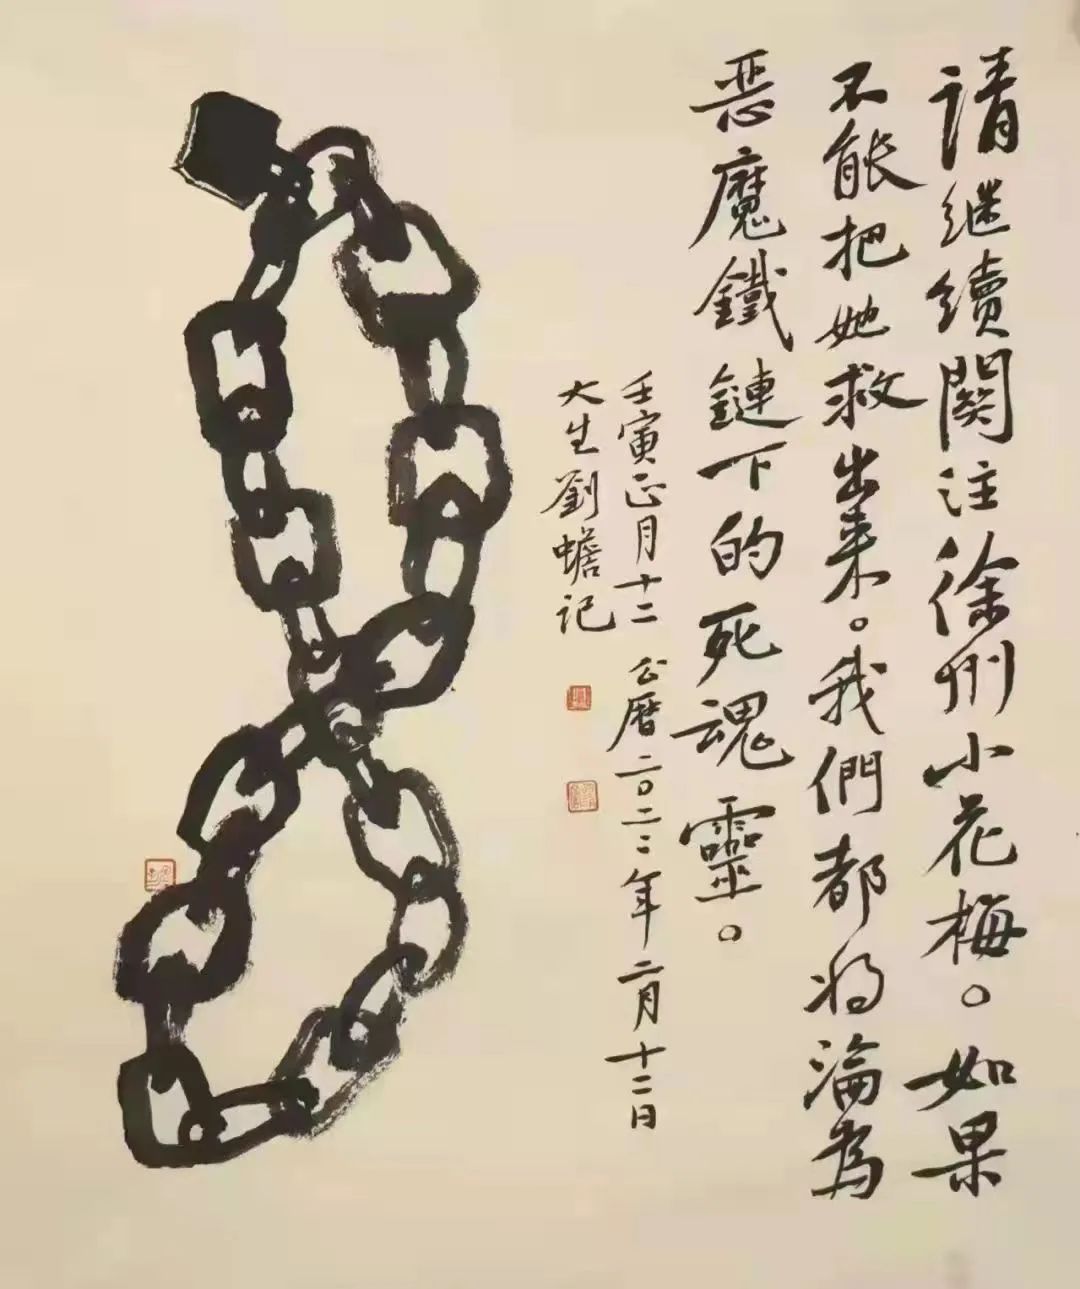 請继續関注徐州小花梅。如果
不能把她救出来。我們都将淪為
恶魔鐵鏈下的死魂靈。
壬寅正月十二 公曆二〇二二年二月十二日
大生劉蟾记